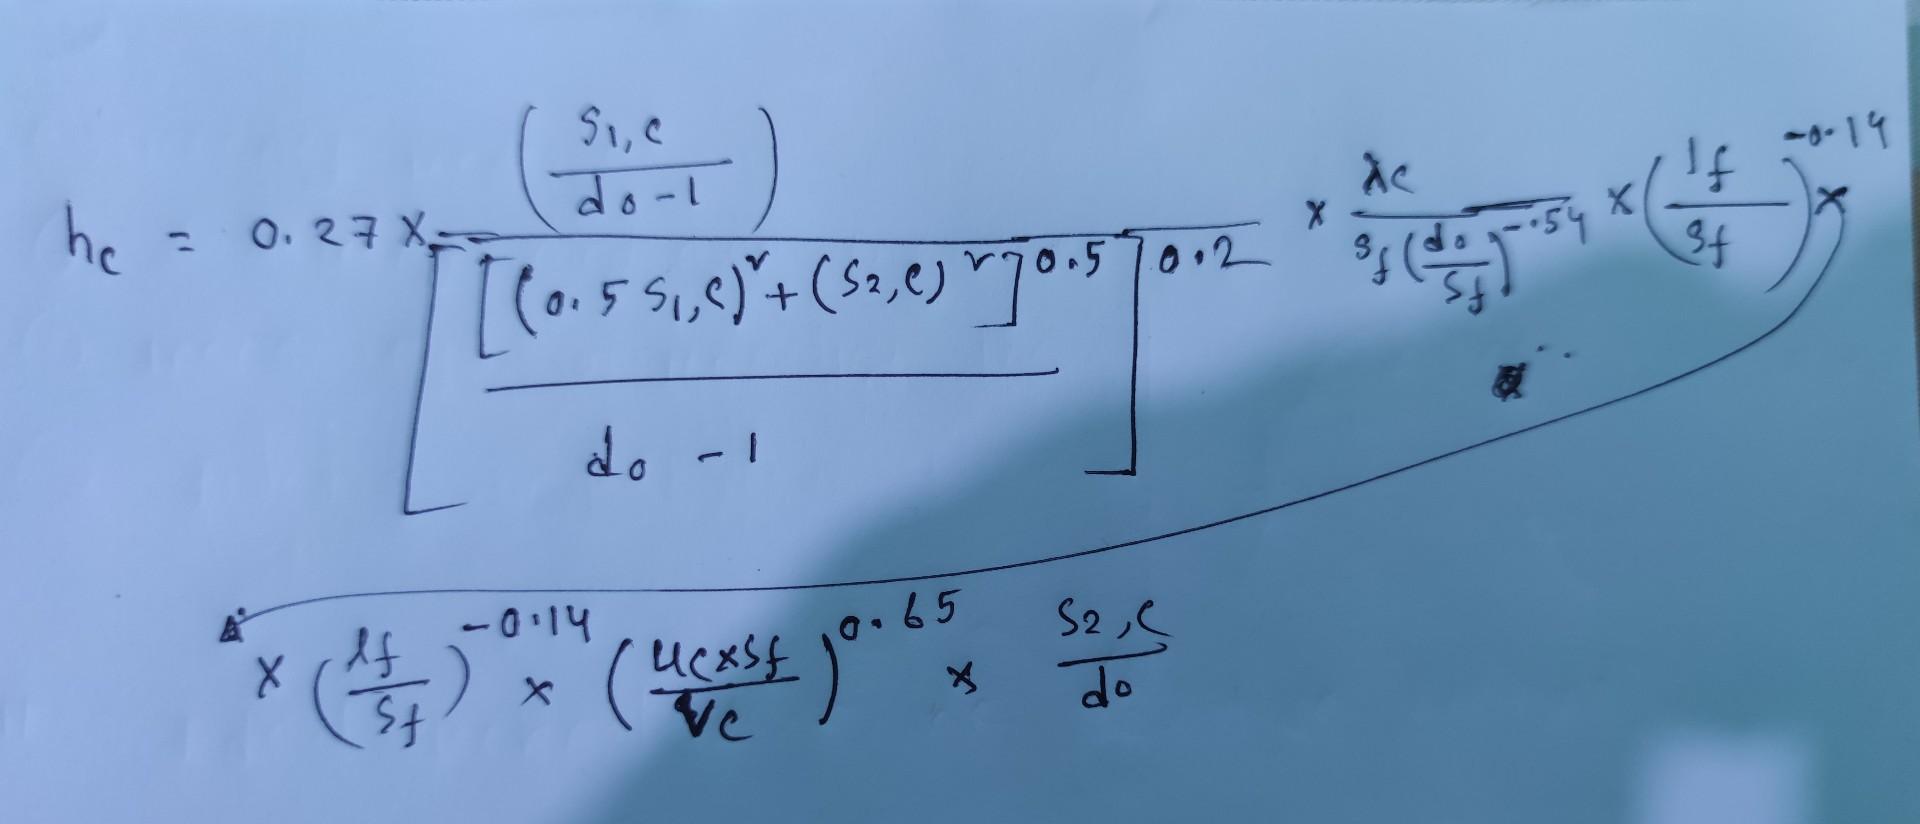 h_c = 0.27 × (S_1,c / (d_o - 1)) / [ [(0.5 S_1,c)^2 + (S_2,c)^2]^0.5 / (d_o - 1) ]^0.2 × λ_c / (S_f (d_o / S_f)^-.54) × (l_f / S_f)^-0.14 ×
× (l_f / S_f)^-0.14 × (u_c × S_f / V_c)^0.65 × S_2,c / d_o